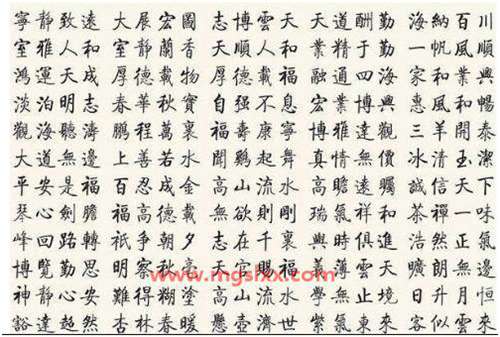 寧靜致遠 大展宏圖 志博雲天 天道酬勤 海納百川
室雅人和 室靜蘭香 順人和 業精于勤 一帆風順
鴻運天成 厚德載物 厚德載福 融通四海 家和業興
淡泊明志 春華秋實 自强不息 宏業博興 惠風和暢
觀海聽濤 鵬程萬裏 福壽康寧 博雅達觀 三羊開泰
大道無邊 上善若水 聞鷄起舞 真情無價 冰清玉潔
平安是福 百忍成金 高山流水 高瞻遠矚 誠信天下
琴心劍膽 福高德載 無欲則剛 瑞氣祥和 茶禪一味
峰回路轉 祇爭朝夕 志在千裏 與時俱進 浩然正氣
博覽勤思 明察秋毫 天官賜福 義薄雲天 朗無邊
神靜心安 難得糊塗 高山流水 學無止境 日升月恒
豁達超然 杏林春暖 懸壺濟世 紫氣東來 客似雲來
www.mgslxx.com